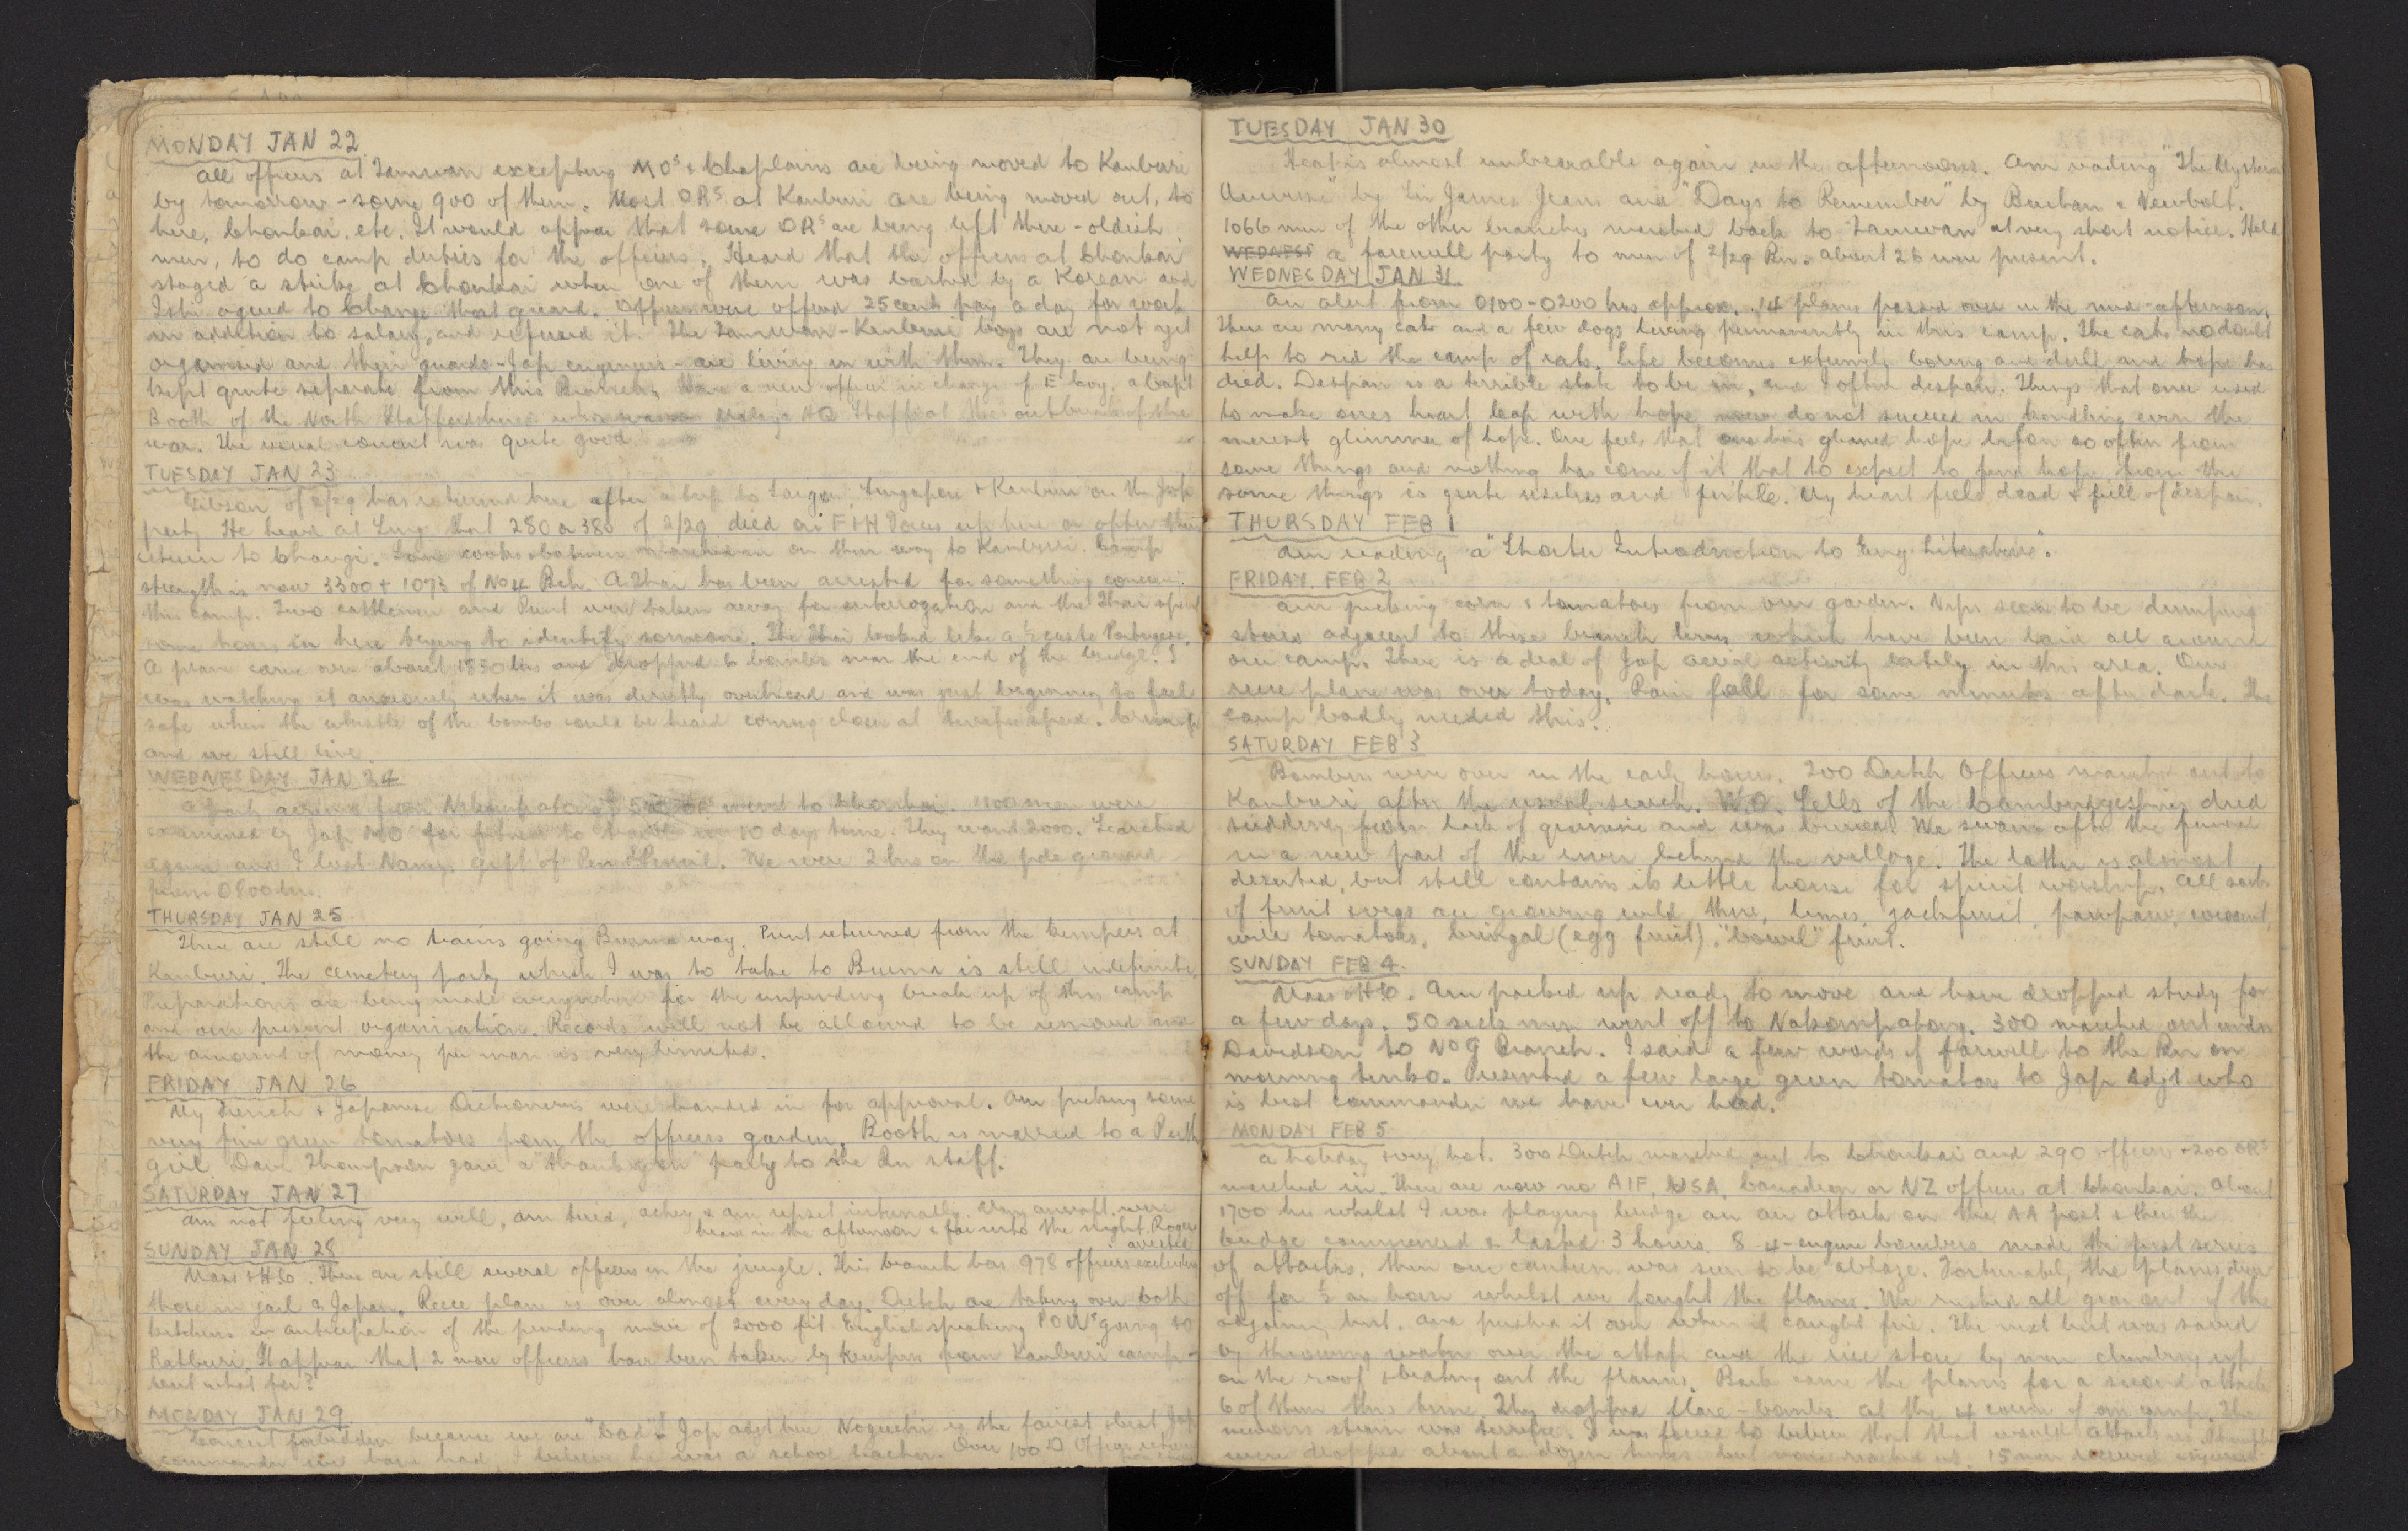 MONDAY JAN 22
All officers at Tamuan excepting MOs & Chaplains are being moved to Kanburi
by tomorrow - some 900 of them. Most ORs at Kanburi are being moved out, to
here, Chonkai. etc. It would appear that some ORs are being left there - oldish
men, to do camp duties for the officers. Heard that the officers at Chonkai
staged a strike at Chonkai when one of them was bashed by a Korean and
Ishi agreed to change that guard. Officers were offered 25 cents pay a day for work
in addition to salary, and refused it. The Tamuan-Kanburi boys are not yet
organised and their guards - Jap engineers - are living in with them. They are being
kept quite separate from this Branch. Have a new officer in charge of E Coy, a Capt
Booth of the North Staffordshires who was Malaya HQ Staff at the outbreak of the
war. The usual concert was quite good.
TUESDAY JAN 23
Gibson of 2/29 has returned here after a trip to Saigon, Singapore & Kanburi on the Jap
party. He heard at Sing that 280 or 380 of 2/29 died on F & H Forces up here or after their
return to Changi. Some cooks & batmen marched in on their way to Kanburi. Camp
strength is now 3300 + 1073 of No 4 Bch. A Thai has been arrested for something concerning
this camp. Two cattlemen and Punt were taken away for interrogation and the Thai spent
some hours in here trying to identify someone. The Thai looked like a ½ caste Portugese.
A plane came over about 1830 hrs and dropped 6 bombs near the end of the bridge. I
was watching it anxiously when it was directly overhead and was just beginning to feel
safe when the whistle of the bombs could be heard coming closer at terrific speed. Crump
and we still live.
WEDNESDAY JAN 24
A party arrived from Nakompatom & 500 ORs went to Chonkai. 1100 men were
examined by Jap MO for fitness to travel in 10 days time. They want 2000. Searched
again and I lost Nancys gift of Pen & Pencil. We were 2 hrs on the pde ground
from 0800 hrs.
THURSDAY JAN 25
There are still no trains going Burma way. Punt returned from the Kempeis at
Kanburi. The cemetery party which I was to take to Burma is still indefinite.
Preparations are being made everywhere for the impending break up of this camp
and our present organisation. Records will not be allowed to be removed and
the amount of money per man is very limited.
FRIDAY JAN 26
My French & Japanese Dictionaries were handed in for approval. Am picking some
very fine green tomatoes from the officers garden. Booth is married to a Perth
girl. Dave Thompson gave a "thanksgiven" party to the Bn staff.
SATURDAY JAN 27
Am not feeling very well, am tired, achey & am upset internally. Many aircraft were
heard in the afternoon & far into the night. Roger
arrested
SUNDAY JAN 28
Mass & HSo. There are still several officers in the jungle. This branch has 978 officers excluding
those in jail & Japan. Recce plane is over almost every day. Dutch are taking over both
kitchens in anticipation of the pending move of 2000 fit English speaking POWs going to
Ratburi. It appears that 2 more officers have been taken by Kempeis from Kanburi camp -
what for?
MONDAY JAN 29
Concert forbidden because we are "bad"! Jap adjt here Noguchi is the fairest & best Jap
commander we have had, I believe he was a school teacher. Over 100 D Officers return
TUESDAY JAN 30
Heat is almost unbearable again in the afternoons. Am reading "The Mysterious
Universe" by Sir James Jeans and "Days to Remember" by Buchan & Newbolt.
1066 men of the other branches marched back to Tamuan at very short notice. Held
WEDNESD a farewell party to men of 2/29 Bn. About 26 were present.
WEDNESDAY JAN 31
An alert from 0100-0200 hrs approx. 14 planes passed over in the mid-afternoon.
There are many cats and a few dogs living permanently in this camp. The cats no doubt
help to rid the camp of rats. Life becomes extremely boring and dull and hope has
died. Despair is a terrible state to be in, and I often despair. Things that once used
to make ones heart leap with hope now do not succeed in kindling even the
merest glimmer of hope. One feels that one has gleaned hope before so often from
same things and nothing has come of it that to expect to find hope from the
same things is quite useless and futile. My heart feels dead & full of despair.
THURSDAY FEB 1
Am reading a "Shorter Introduction to Eng. Literature".
FRIDAY FEB 2
Am picking corn & tomatoes from our garden. Nips seem to be dumping
stores adjacent to these branch lines which have been laid all around
our camp. There is a deal of Jap aerial activity lately in this area. Our
recce plane was over today. Rain fell for some minutes after dark. The
camp badly needed this.
SATURDAY FEB 3
Bombers were over in the early hours. 200 Dutch Officers marched out to
Kanburi after the usual search. W.O. Sells of the Cambridgeshires died
suddenly from lack of quinine and was buried. We swam after the funeral
in a new part of the river behind the village. The latter is almost
deserted, but still contains its little house for spirit worship. All sorts
of fruit & vegs are growing wild there, limes, jackfruit, pawpaw, coconut,
wild tomatoes, bringal (egg fruit), "bowel" fruit.
SUNDAY FEB 4
Mass & HSo. Am packed up ready to move and have dropped study for
a few days. 50 sick men went off to Nakompatom. 300 marched out under
Davidson to No 9 Branch. I said a few words of farewell to the Bn on
morning tenko. Presented a few large green tomatoes to Jap Adjt who
is best commander we have ever had.
MONDAY FEB 5
A holiday & very hot. 300 Dutch marched out to Chonkai and 290 officers & 200 ORs
marched in. There are now no AIF, USA, Canadian or NZ officers at Chonkai. About
1700 hrs whilst I was playing bridge an air attack on the AA post & then the
bridge commenced & lasted 3 hours. 8 4-engine bombers made the first series
of attacks, then our canteen was seen to be ablaze. Fortunately, the planes drew
off for ½ an hour whilst we fought the flames. We rushed all gear out of the
adjoining hut, and pushed it over when it caught fire. The next hut was saved
by throwing water over the attap and the rice store by men climbing up
on the roof & beating out the flames. Back came the planes for a second attack
6 of them this time. They dropped flare-bombs at the 4 corners of our camp. The
nervous strain was terrific. I was forced to believe that they would attack us.
were dropped about a dozen times but none reached us. 15 men received injuries